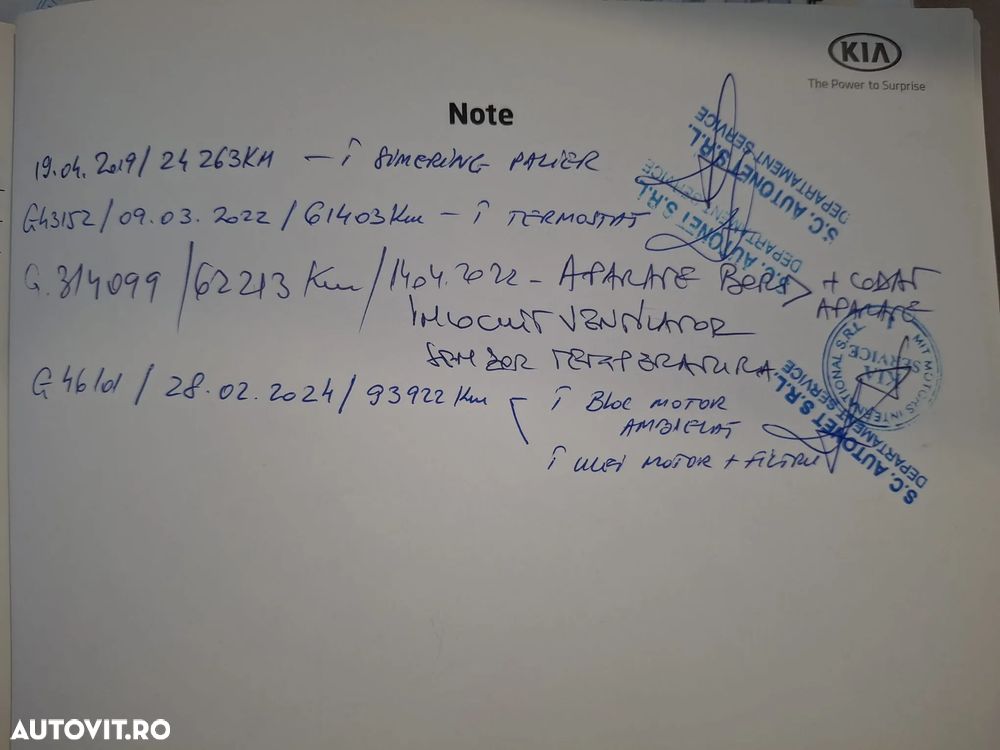 KIA
The Power to Surprise
Note
19.04.2019/24263KM — Î SIMERING PALIER
G43152/09.03.2022/61403Km — Î TERMOSTAT
G.314099/62213 Km/14.04.2022 - APARATE BORD + CODAT
APARATE
ÎNLOCUIT VENTILATOR
SENZOR TEMPERATURA
G46101/28.02.2024/93922 Km — Î BLOC MOTOR
AMBIELAT
Î ULEI MOTOR + FILTRU
S.C. AUTONET S.R.L.
DEPARTAMENT SERVICE
S.C. AUTONET S.R.L.
DEPARTAMENT SERVICE
S.C. AUTONET S.R.L.
DEPARTAMENT SERVICE
MIT MOTORS INTERNATIONAL S.R.L
KIA
SERVICE
AUTOVIT.RO